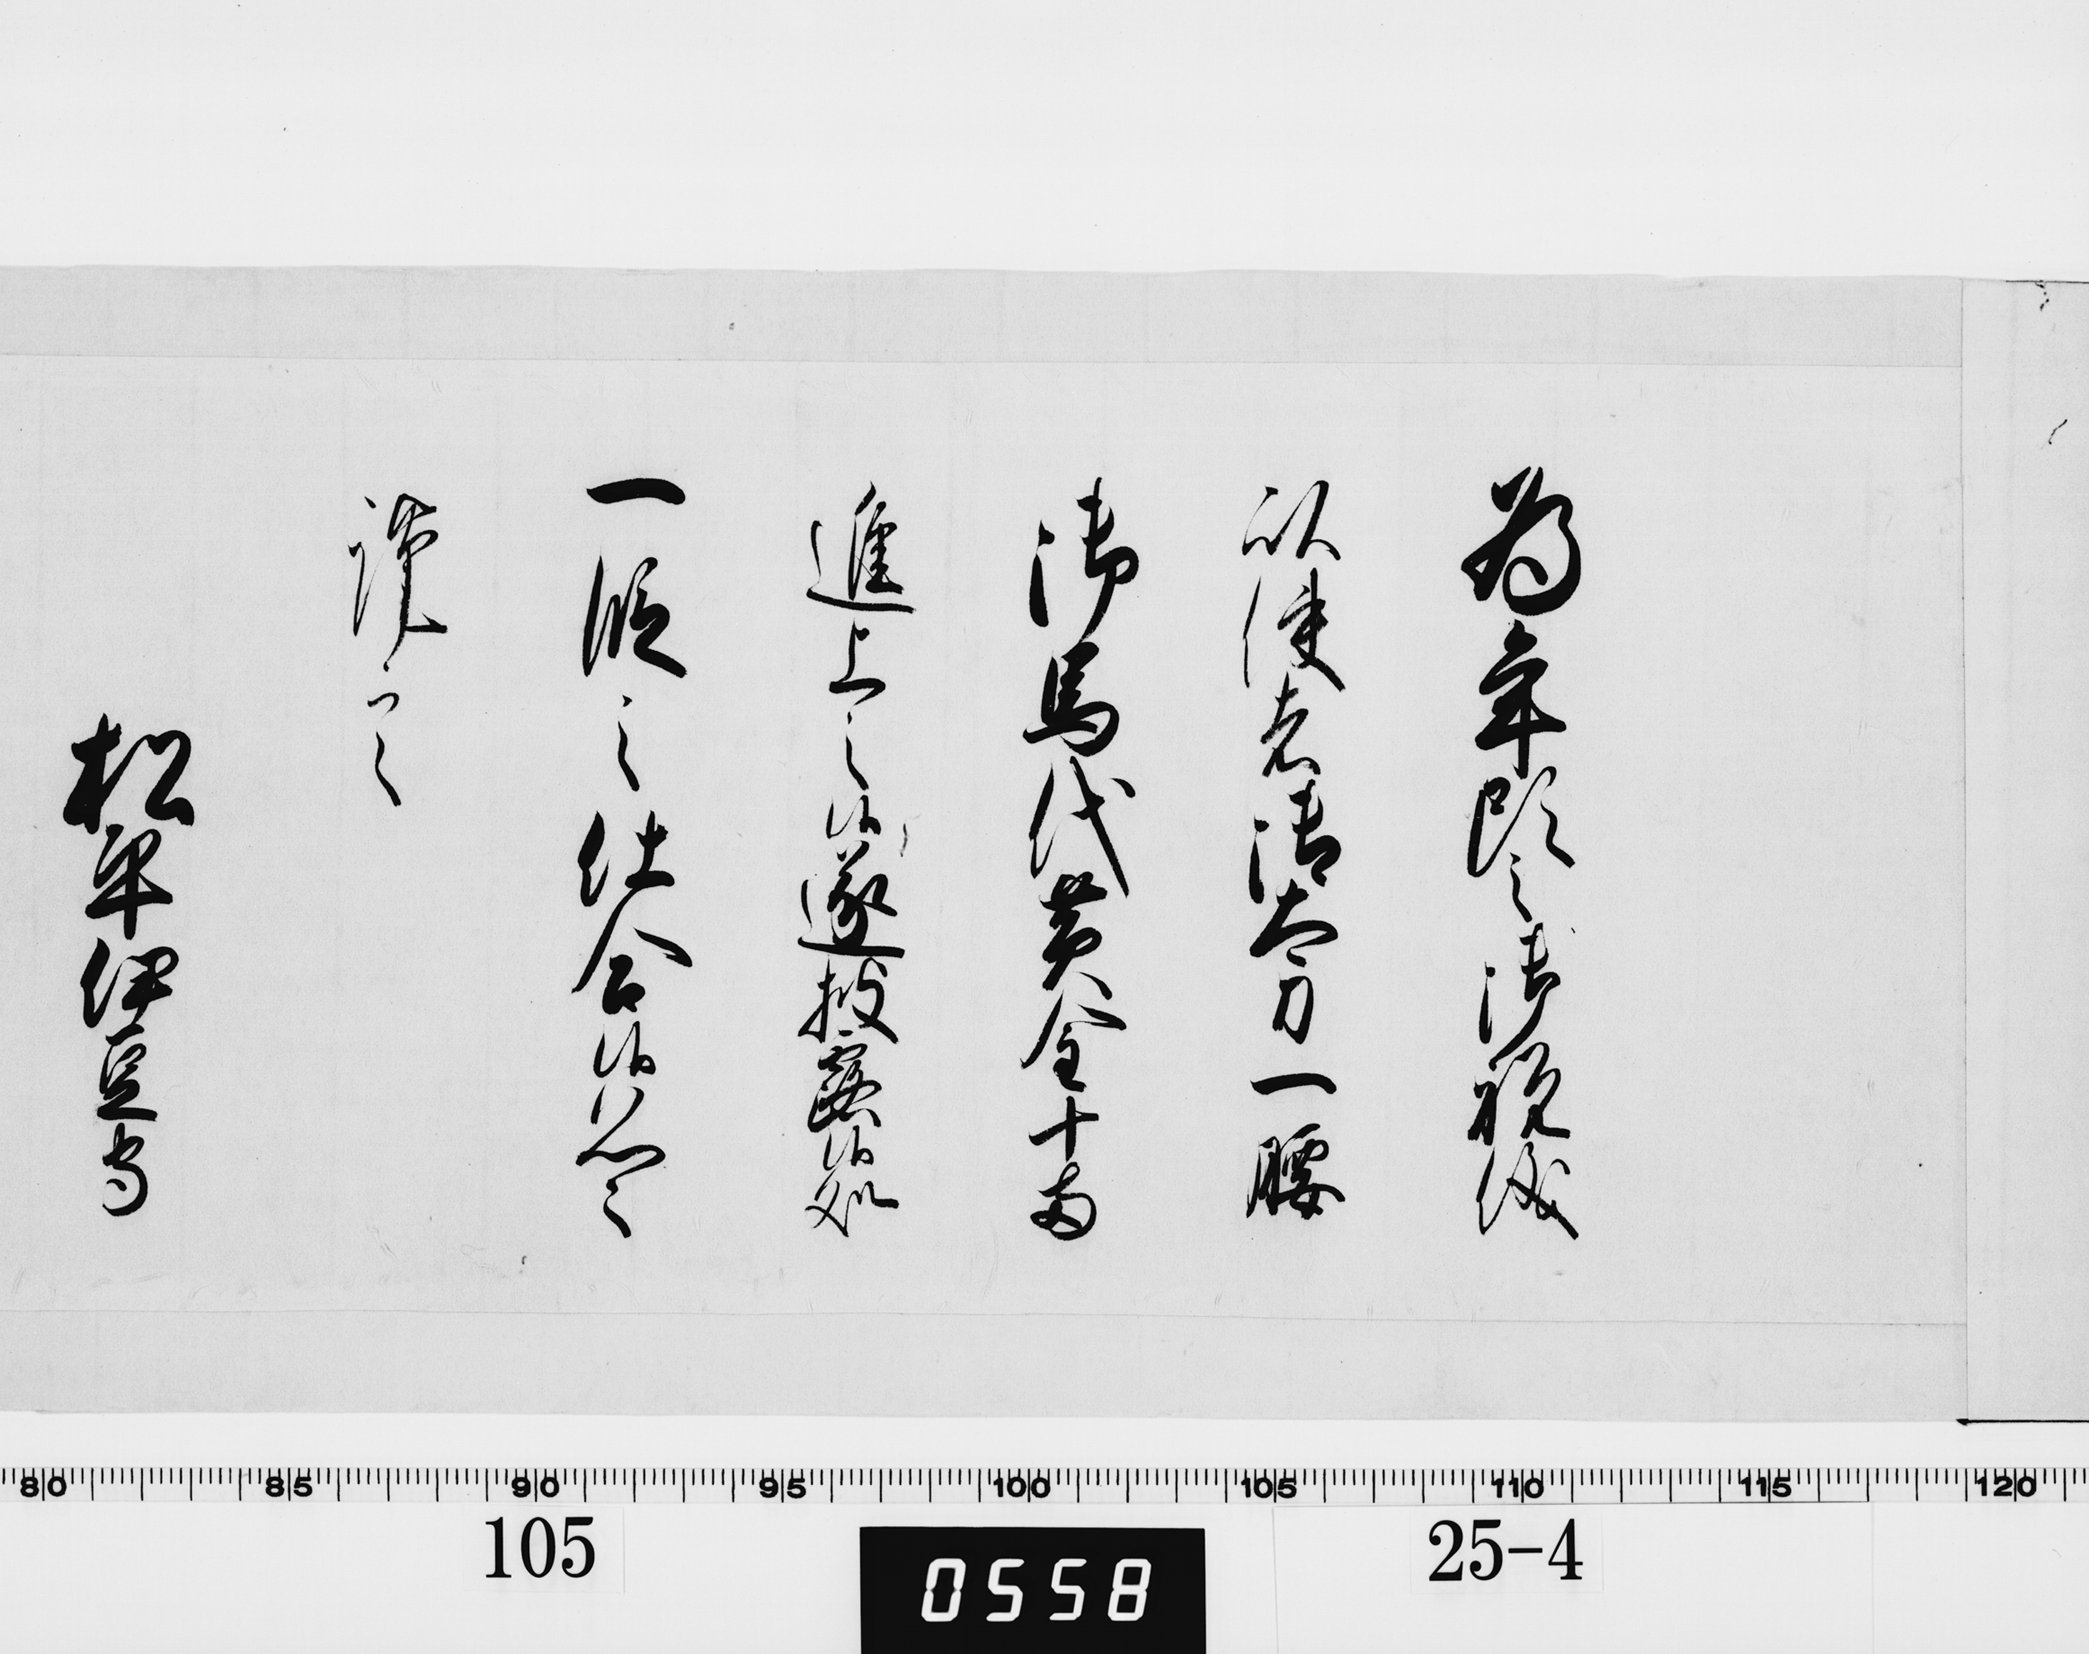 為年頭之御祝儀
以使者御太刀一腰
御馬代黄金十両
進上之候遂披露候処
一段之仕合候恐々
謹言
松平伊豆守
80 85 90 95 100 105 110 115 120
105
0558
25-4